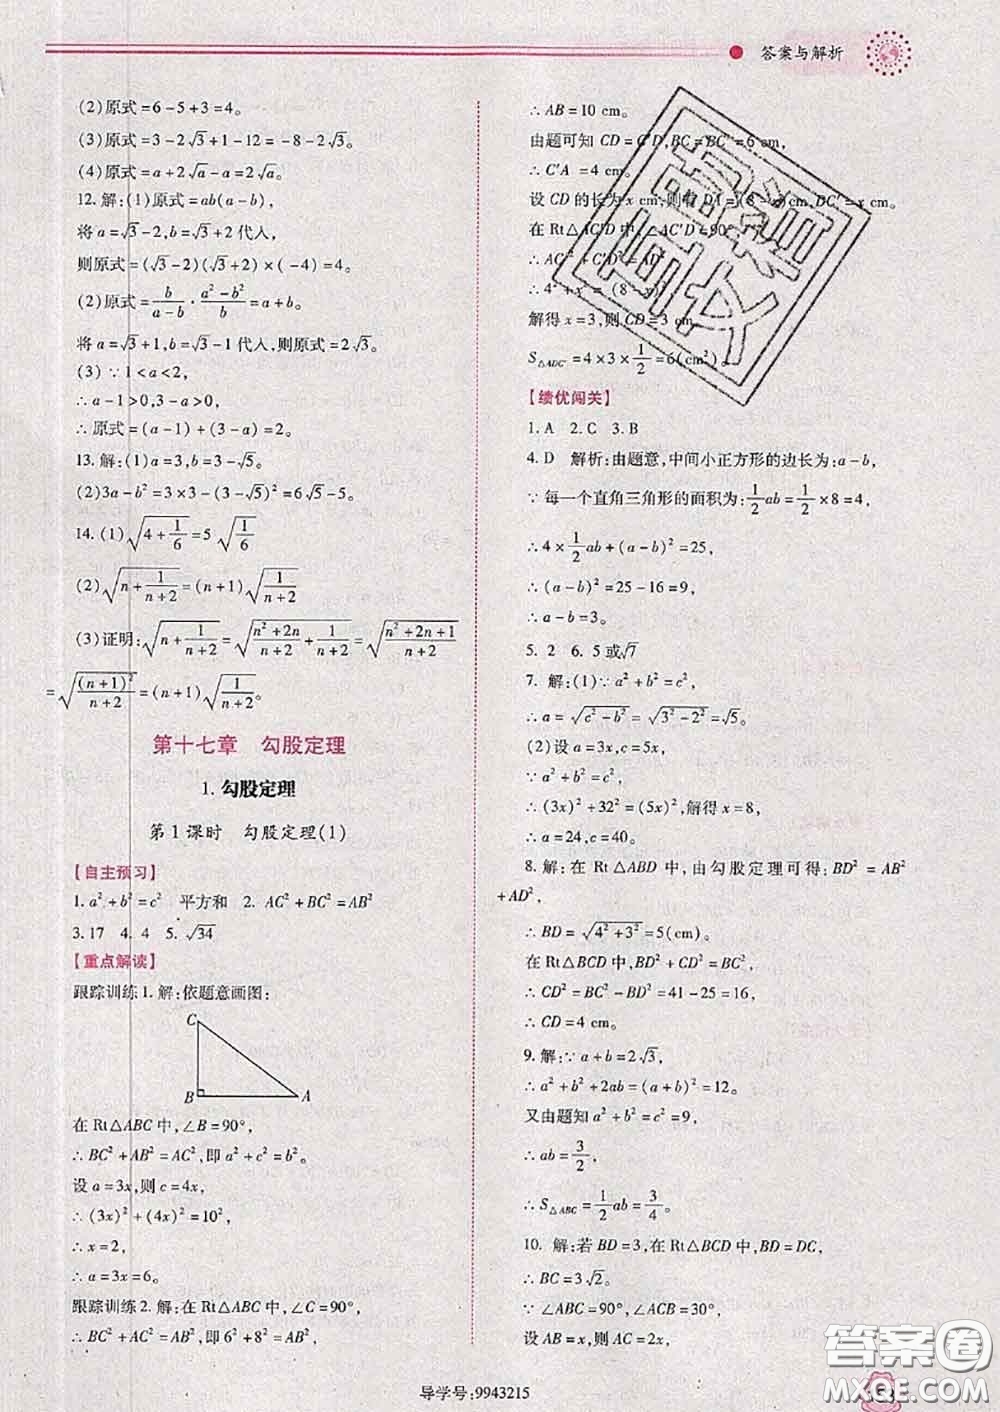 答案与解析
(2)原式=6-5+3=4。
(3)原式=3-2√3+1-12=-8-2√3。
(4)原式=a+2√a-a=2√a。
12.解:(1)原式=ab(a-b),
将a=√3-2,b=√3+2代入,
则原式=(√3-2)(√3+2)×(-4)=4。
(2)原式=b/(a-b)·(a²-b²)/b=a+b。
将a=√3+1,b=√3-1代入,则原式=2√3。
(3)∵1<a<2,
∴a-1>0,3-a>0,
∴原式=(a-1)+(3-a)=2。
13.解:(1)a=3,b=3-√5。
(2)3a-b²=3×3-(3-√5)²=6√5-5。
14.(1)√(4+1/6)=5√(1/6)
(2)√(n+1/(n+2))=(n+1)√(1/(n+2))
(3)证明:√(n+1/(n+2))=√((n²+2n)/(n+2)+1/(n+2))=√((n²+2n+1)/(n+2))
=√((n+1)²/(n+2))=(n+1)√(1/(n+2))。
第十七章 勾股定理
1.勾股定理
第1课时 勾股定理(1)
【自主预习】
1.a²+b²=c² 平方和 2.AC²+BC²=AB²
3.17 4.4 5.√34
【重点解读】
跟踪训练1.解:依题意画图:
C
B A
在Rt△ABC中,∠B=90°,
∴BC²+AB²=AC²,即a²+c²=b²。
设a=3x,则c=4x,
∴(3x)²+(4x)²=10²,
∴x=2,
∴a=3x=6。
跟踪训练2.解:在Rt△ABC中,∠C=90°,
∴BC²+AC²=AB²,即6²+8²=AB²,
∴AB=10 cm。
由题可知CD=C'D,BC=BC'=6 cm,
∴C'A=4 cm。
设CD的长为x cm,则有DA=(8-x)cm,DC'=x cm。
在Rt△AC'D中,∠AC'D=90°,
∴AC'²+C'D²=AD²
∴4²+x²=(8-x)²
解得x=3,则CD=3 cm
S△ADC'=4×3×1/2=6(cm²)。
【绩优闯关】
1.A 2.C 3.B
4.D 解析:由题意,中间小正方形的边长为:a-b,
∵每一个直角三角形的面积为:1/2ab=1/2×8=4,
∴4×1/2ab+(a-b)²=25,
∴(a-b)²=25-16=9,
∴a-b=3。
5.2 6.5或√7
7.解:(1)∵a²+b²=c²,
∴a=√(c²-b²)=√(3²-2²)=√5。
(2)设a=3x,c=5x,
∵a²+b²=c²,
∴(3x)²+32²=(5x)²,解得x=8,
∴a=24,c=40。
8.解:在Rt△ABD中,由勾股定理可得:BD²=AB²
+AD²,
∴BD=√(4²+3²)=5(cm)。
在Rt△BCD中,BD²+CD²=BC²,
∴CD²=BC²-BD²=41-25=16,
∴CD=4 cm。
9.解:∵a+b=2√3,
∴a²+b²+2ab=(a+b)²=12。
又由题知a²+b²=c²=9,
∴ab=3/2,
∴S△ABC=1/2ab=3/4。
10.解:若BD=3,在Rt△BCD中,BD=DC,
∴BC=3√2。
∵∠ABC=90°,∠ACB=30°,
设AB=x,则AC=2x,
导学号:9943215
答案圈
MXQE.COM